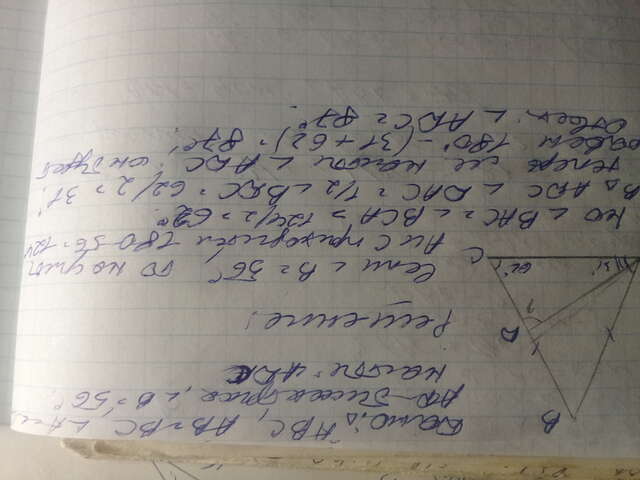 Дано: △ABC, AB=BC
AD-биссектриса, ∠B=56°
найти: ADC
Решение:
Если ∠B=56°, то на угол
A и C приходится 180-56=124
но ∠BAC=∠BCA=124/2=62°
В △ADC ∠DAC=1/2 ∠BAC=62/2=31°.
теперь найти ∠ADC: он будет
равен 180°-(31+62)=87°.
Ответ: ∠ADC=87°.
B
D
?
C
62°
31°